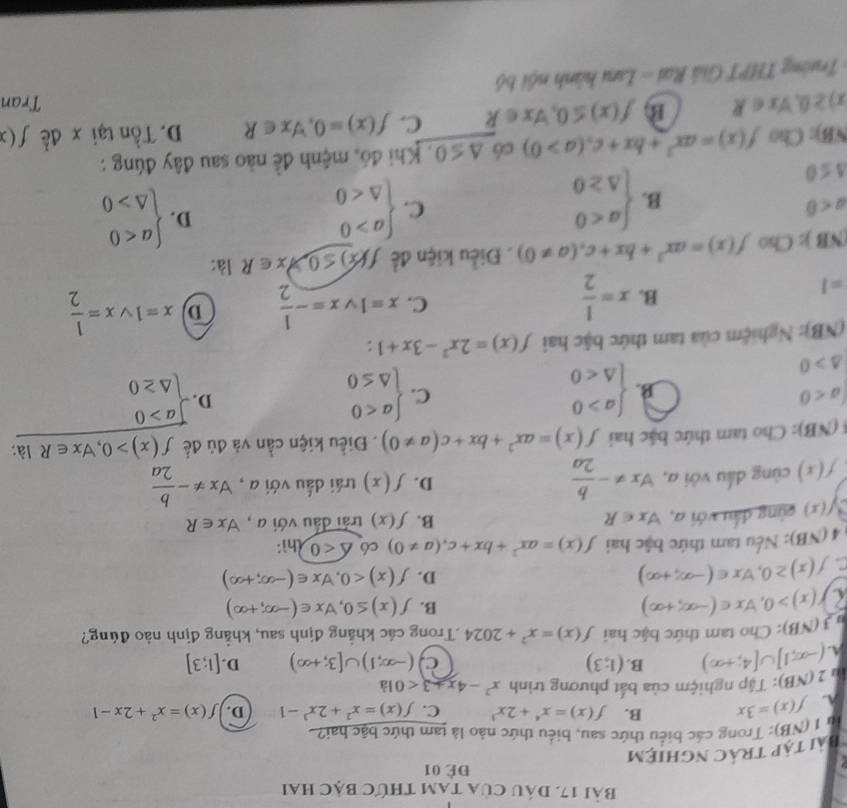 BÀI 17. DẤU CỦA TAM THỨC BẬC HAI
ĐỀ 01
BÀI TẬP TRẮC NGHIỆM
1 (NB): Trong các biểu thức sau, biểu thức nào là tam thức bậc hai?
A. f(x) = 3x B. f(x) = x⁴ + 2x² C. f(x) = x² + 2x³ − 1 D. f(x) = x² + 2x − 1
2 (NB): Tập nghiệm của bất phương trình x² − 4x + 3 < 0 là
A. (−∞;1]∪[4;+∞) B. (1;3) C. (−∞;1)∪[3;+∞) D. [1;3]
3 (NB): Cho tam thức bậc hai f(x) = x² + 2024. Trong các khẳng định sau, khẳng định nào đúng?
A. f(x) > 0, ∀x ∈ (−∞;+∞) B. f(x) ≤ 0, ∀x ∈ (−∞;+∞)
C. f(x) ≥ 0, ∀x ∈ (−∞;+∞) D. f(x) < 0, ∀x ∈ (−∞;+∞)
4 (NB): Nếu tam thức bậc hai f(x) = ax² + bx + c, (a ≠ 0) có Δ < 0 thì:
f(x) cùng dấu với a, ∀x ∈ R B. f(x) trái dấu với a, ∀x ∈ R
f(x) cùng dấu với a, ∀x ≠ −b/2a D. f(x) trái dấu với a, ∀x ≠ −b/2a
(NB): Cho tam thức bậc hai f(x) = ax² + bx + c (a ≠ 0). Điều kiện cần và đủ để f(x) > 0, ∀x ∈ R là:
{a < 0 B. {a > 0 C. {a < 0 D. {a > 0
Δ > 0 Δ < 0 Δ ≤ 0 Δ ≥ 0
(NB): Nghiệm của tam thức bậc hai f(x) = 2x² − 3x + 1:
= 1 B. x = 1/2 C. x = 1 ∨ x = −1/2 D x = 1 ∨ x = 1/2
(NB): Cho f(x) = ax² + bx + c, (a ≠ 0). Điều kiện để f(x) ≤ 0, ∀x ∈ R là:
a < 0 B. {a < 0 C. {a > 0 D. {a < 0
Δ ≤ 0 Δ ≥ 0 Δ < 0 Δ > 0
NB): Cho f(x) = ax² + bx + c, (a > 0) có Δ ≤ 0. Khi đó, mệnh đề nào sau đây đúng :
x) ≥ 0, ∀x ∈ R B. f(x) ≤ 0, ∀x ∈ R C. f(x) = 0, ∀x ∈ R D. Tồn tại x để f(x
Trường THPT Giá Rai – Lưu hành nội bộ Tran